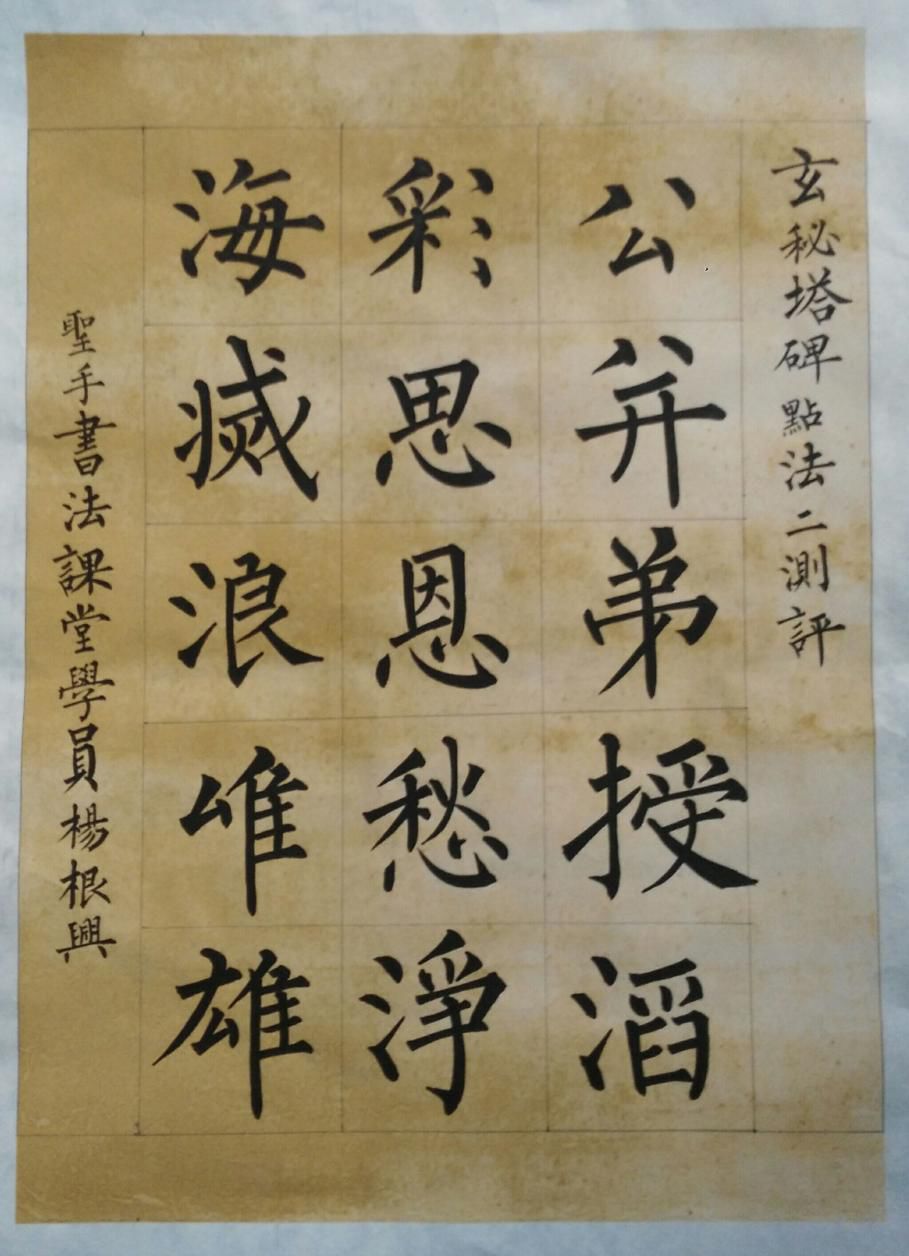 玄秘塔碑點法二測評
公并弟授滔
彩思恩愁淨
海滅浪唯雄
聖手書法課堂學員楊根興